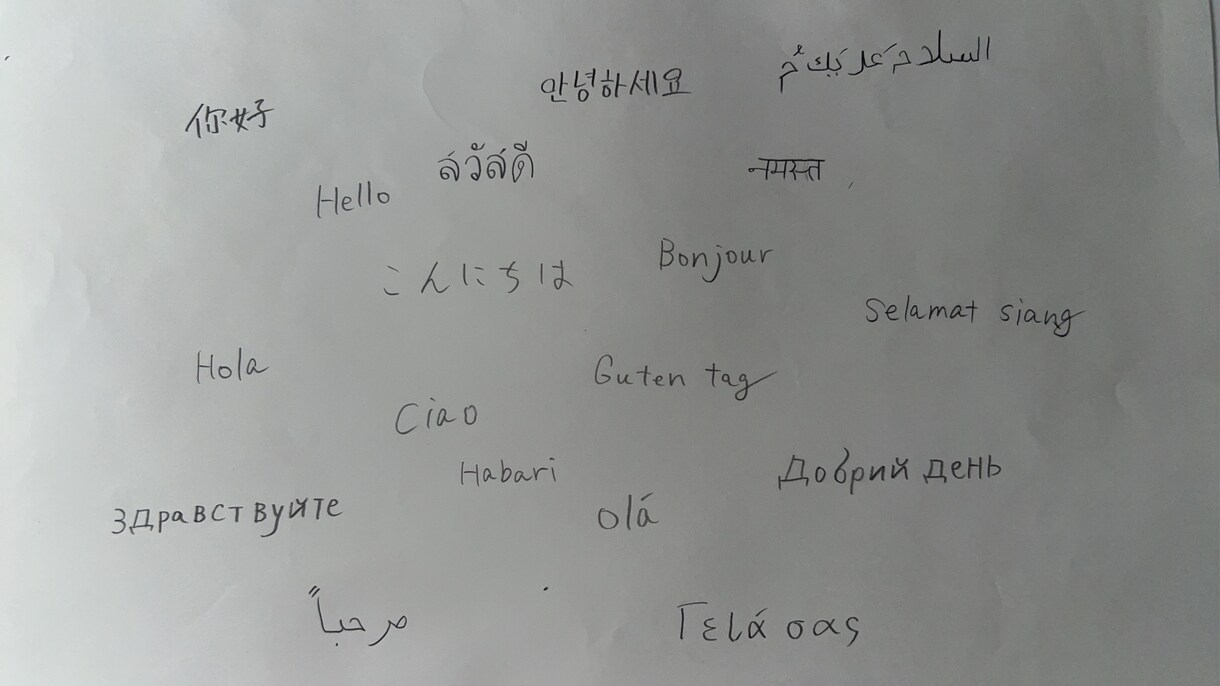 السلام عليكم
안녕하세요
你好
สวัสดี
नमस्त
Hello
Bonjour
こんにちは
Selamat siang
Hola
Guten tag
Ciao
Habari
Добрий день
Здравствуйте
Olá
مرحباً
Γειά σας